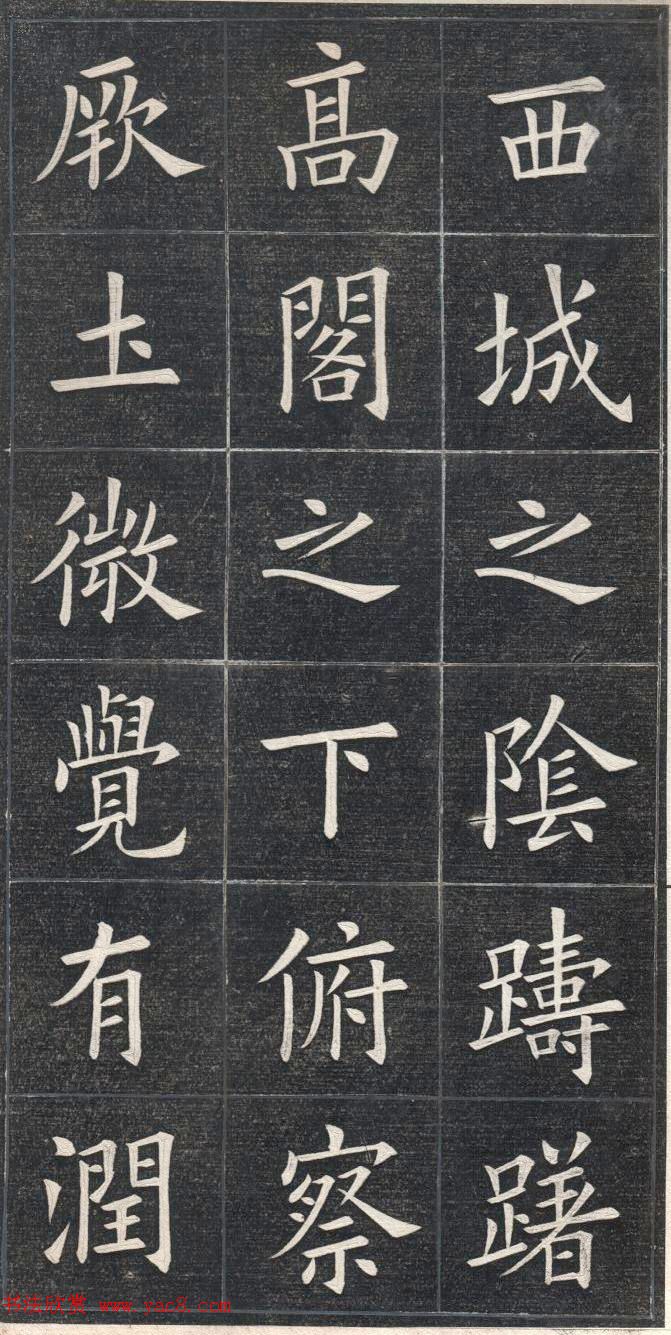 西城之陰躊躇
高閣之下俯察
厥土微覺有潤
书法欣赏 www.yac8.com